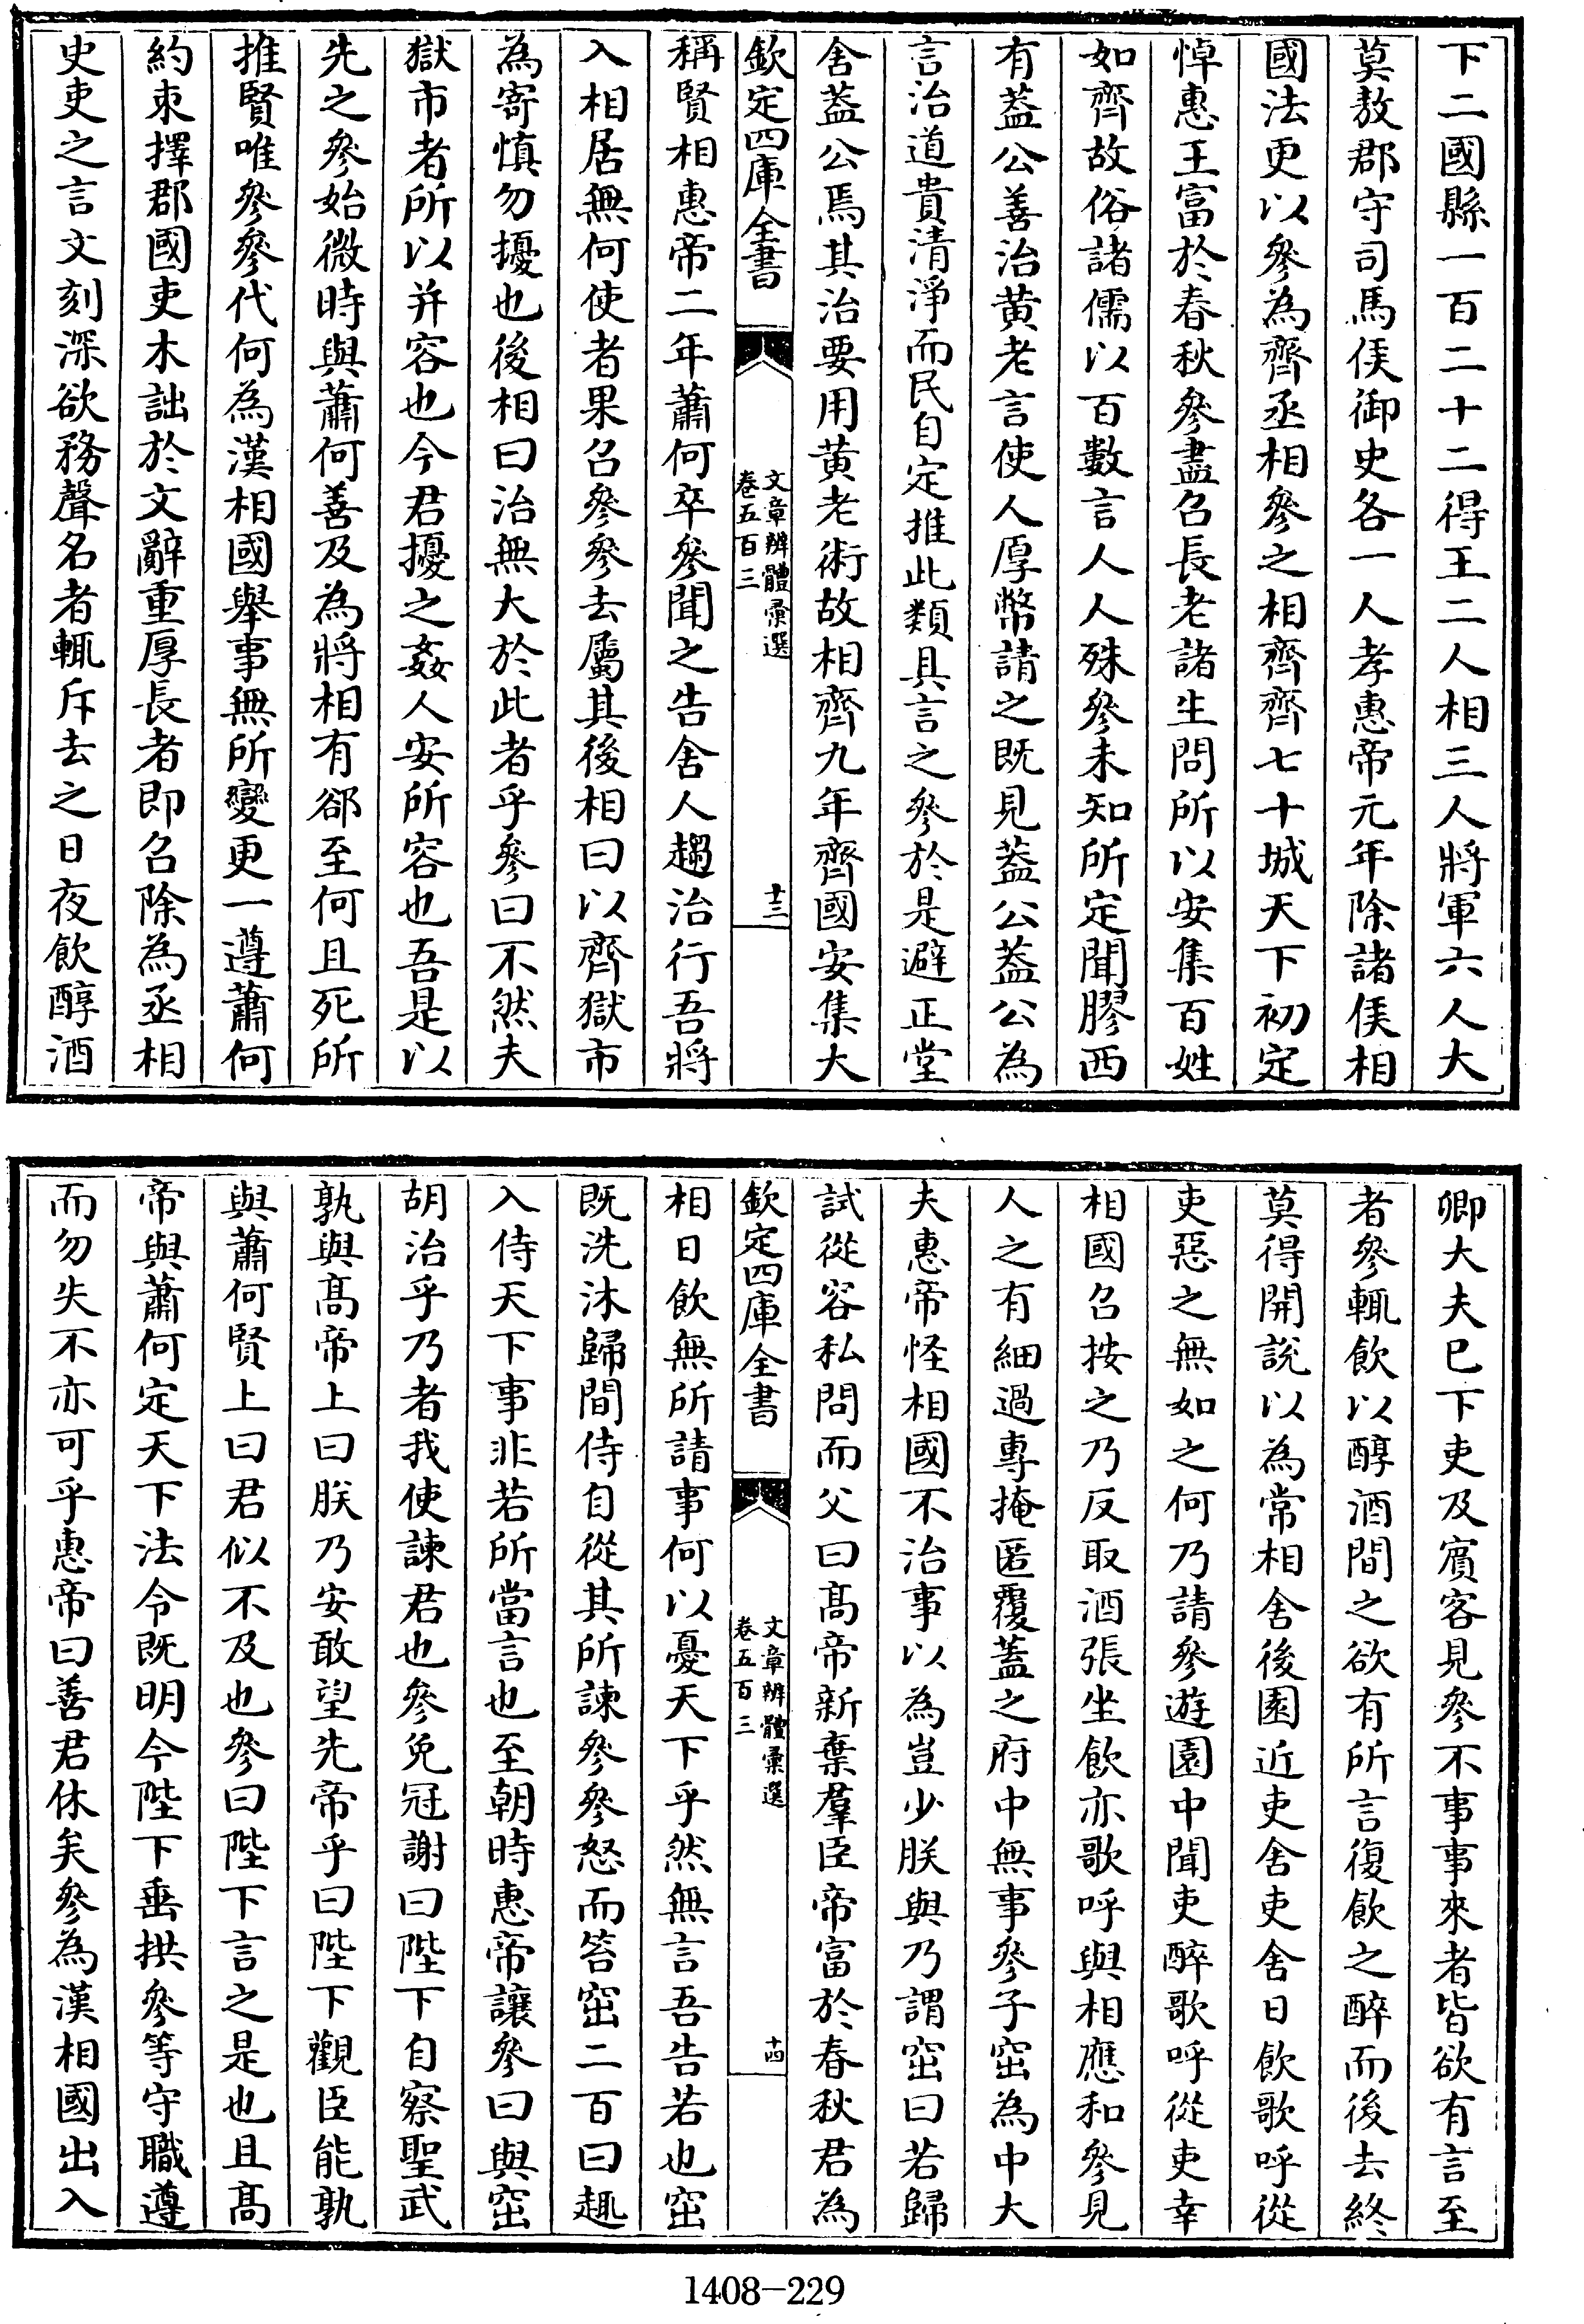 下二國縣一百二十二得王二人相三人將軍六人大
莫敖郡守司馬侯御史各一人孝惠帝元年除諸侯相
國法更以參為齊丞相參之相齊齊七十城天下初定
悼惠王富於春秋參盡召長老諸生問所以安集百姓
如齊故俗諸儒以百數言人人殊參未知所定聞膠西
有葢公善治黄老言使人厚幣請之既見葢公葢公為
言治道貴清淨而民自定推此類具言之參於是避正堂
舍葢公焉其治要用黄老術故相齊九年齊國安集大
欽定四庫全書
文章辨體彚選
卷五百三
十三
稱賢相惠帝二年蕭何卒參聞之告舍人趨治行吾將
入相居無何使者果召參參去屬其後相曰以齊獄市
為寄慎勿擾也後相曰治無大於此者乎參曰不然夫
獄市者所以并容也今君擾之姦人安所容也吾是以
先之參始微時與蕭何善及為將相有郤至何且死所
推賢唯參參代何為漢相國舉事無所變更一遵蕭何
約束擇郡國吏木詘於文辭重厚長者即召除為丞相
史吏之言文刻深欲務聲名者輒斥去之日夜飲醇酒
卿大夫已下吏及賓客見參不事事來者皆欲有言至
者參輒飲以醇酒間之欲有所言復飲之醉而後去終
莫得開說以為常相舍後園近吏舍吏舍日飲歌呼從
吏惡之無如之何乃請參遊園中聞吏醉歌呼從吏幸
相國召按之乃反取酒張坐飲亦歌呼與相應和參見
人之有細過專掩匿覆葢之府中無事參子窋為中大
夫惠帝怪相國不治事以為豈少朕與乃謂窋曰若歸
試從容私問而父曰髙帝新棄羣臣帝富於春秋君為
欽定四庫全書
文章辨體彚選
卷五百三
十四
相日飲無所請事何以憂天下乎然無言吾告若也窋
既洗沐歸間侍自從其所諫參參怒而笞窋二百曰趣
入侍天下事非若所當言也至朝時惠帝讓參曰與窋
胡治乎乃者我使諫君也參免冠謝曰陛下自察聖武
孰與髙帝上曰朕乃安敢望先帝乎曰陛下觀臣能孰
與蕭何賢上曰君似不及也參曰陛下言之是也且髙
帝與蕭何定天下法令既明今陛下垂拱參等守職遵
而勿失不亦可乎惠帝曰善君休矣參為漢相國出入
1408-229